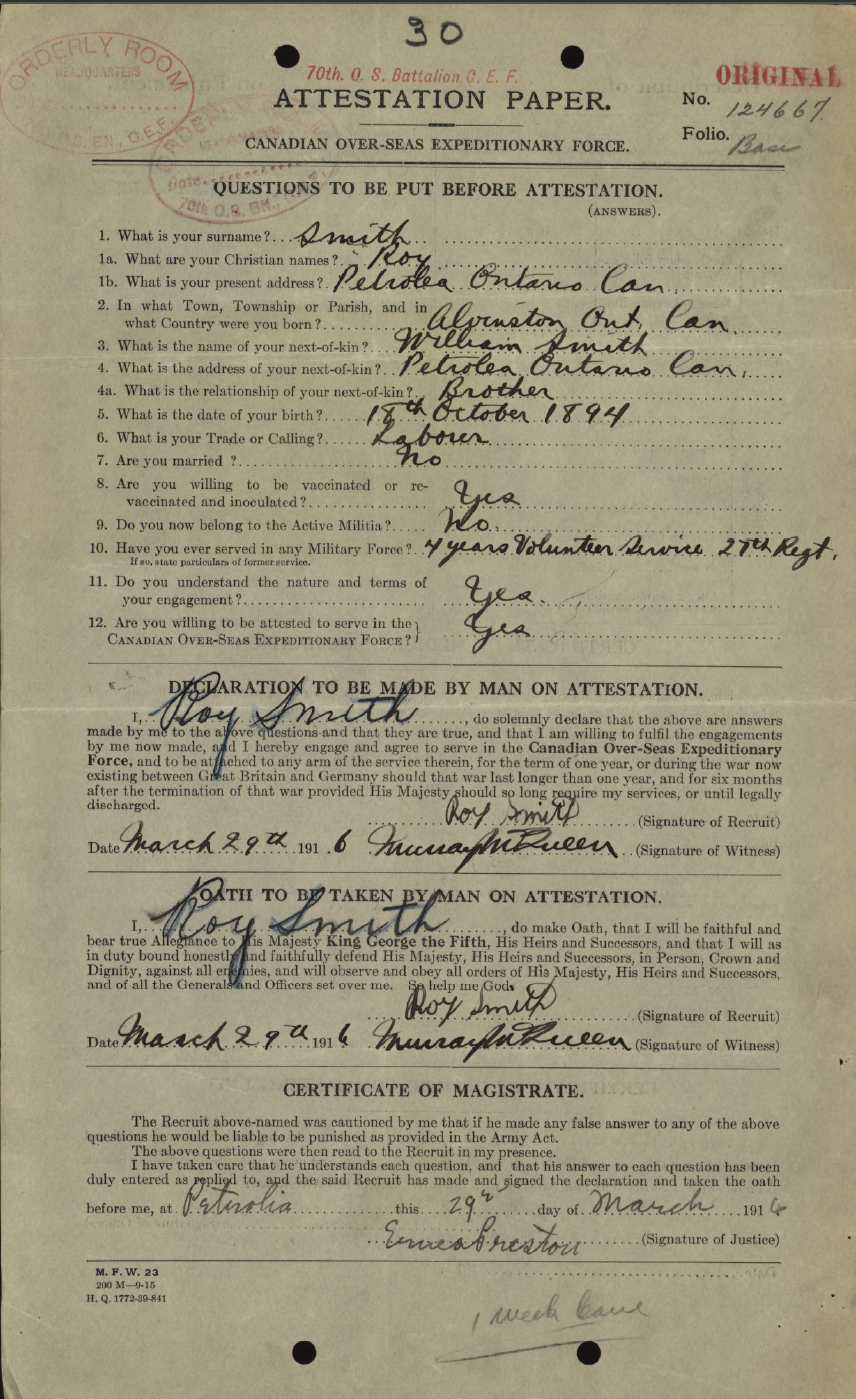 30
ORDERLY ROOM
HEADQUARTERS
C.E.F.
70th. O. S. Battalion C. E. F.
ORIGINAL
ATTESTATION PAPER.
No. 124667
Folio.
CANADIAN OVER-SEAS EXPEDITIONARY FORCE.
Date
70th O.S. BN.
QUESTIONS TO BE PUT BEFORE ATTESTATION.
(ANSWERS).
1. What is your surname?... Smith
1a. What are your Christian names?. Roy
1b. What is your present address?. Petrolea Ontario Can.
2. In what Town, Township or Parish, and in
what Country were you born?.......... Alvinston Ont. Can
3. What is the name of your next-of-kin?.. William Smith
4. What is the address of your next-of-kin?.. Petrolea Ontario Can.
4a. What is the relationship of your next-of-kin?.. Brother
5. What is the date of your birth?...... 18th October 1894
6. What is your Trade or Calling?...... Labourer
7. Are you married ?.......... No
8. Are you willing to be vaccinated or re-
vaccinated and inoculated?.......... Yes
9. Do you now belong to the Active Militia?..... No.
10. Have you ever served in any Military Force?. 4 years Volunteer Service 27th Regt.
If so, state particulars of former service.
11. Do you understand the nature and terms of
your engagement?.......... Yes.
12. Are you willing to be attested to serve in the
CANADIAN OVER-SEAS EXPEDITIONARY FORCE? Yes
DECLARATION TO BE MADE BY MAN ON ATTESTATION.
I, Roy Smith ......, do solemnly declare that the above are answers
made by me to the above questions and that they are true, and that I am willing to fulfil the engagements
by me now made, and I hereby engage and agree to serve in the Canadian Over-Seas Expeditionary
Force, and to be attached to any arm of the service therein, for the term of one year, or during the war now
existing between Great Britain and Germany should that war last longer than one year, and for six months
after the termination of that war provided His Majesty should so long require my services, or until legally
discharged.
Roy Smith (Signature of Recruit)
Date March 29th 1916 Murray McQueen (Signature of Witness)
OATH TO BE TAKEN BY MAN ON ATTESTATION.
I, Roy Smith ......, do make Oath, that I will be faithful and
bear true Allegiance to His Majesty King George the Fifth, His Heirs and Successors, and that I will as
in duty bound honestly and faithfully defend His Majesty, His Heirs and Successors, in Person, Crown and
Dignity, against all enemies, and will observe and obey all orders of His Majesty, His Heirs and Successors,
and of all the Generals and Officers set over me. So help me God.
Roy Smith (Signature of Recruit)
Date March 29th 1916 Murray McQueen (Signature of Witness)
CERTIFICATE OF MAGISTRATE.
The Recruit above-named was cautioned by me that if he made any false answer to any of the above
questions he would be liable to be punished as provided in the Army Act.
The above questions were then read to the Recruit in my presence.
I have taken care that he understands each question, and that his answer to each question has been
duly entered as replied to, and the said Recruit has made and signed the declaration and taken the oath
before me, at Petrolia this 29th day of March 1916
Preston (Signature of Justice)
M. F. W. 23
200 M—9-15
H. Q. 1772-39-841
1 week